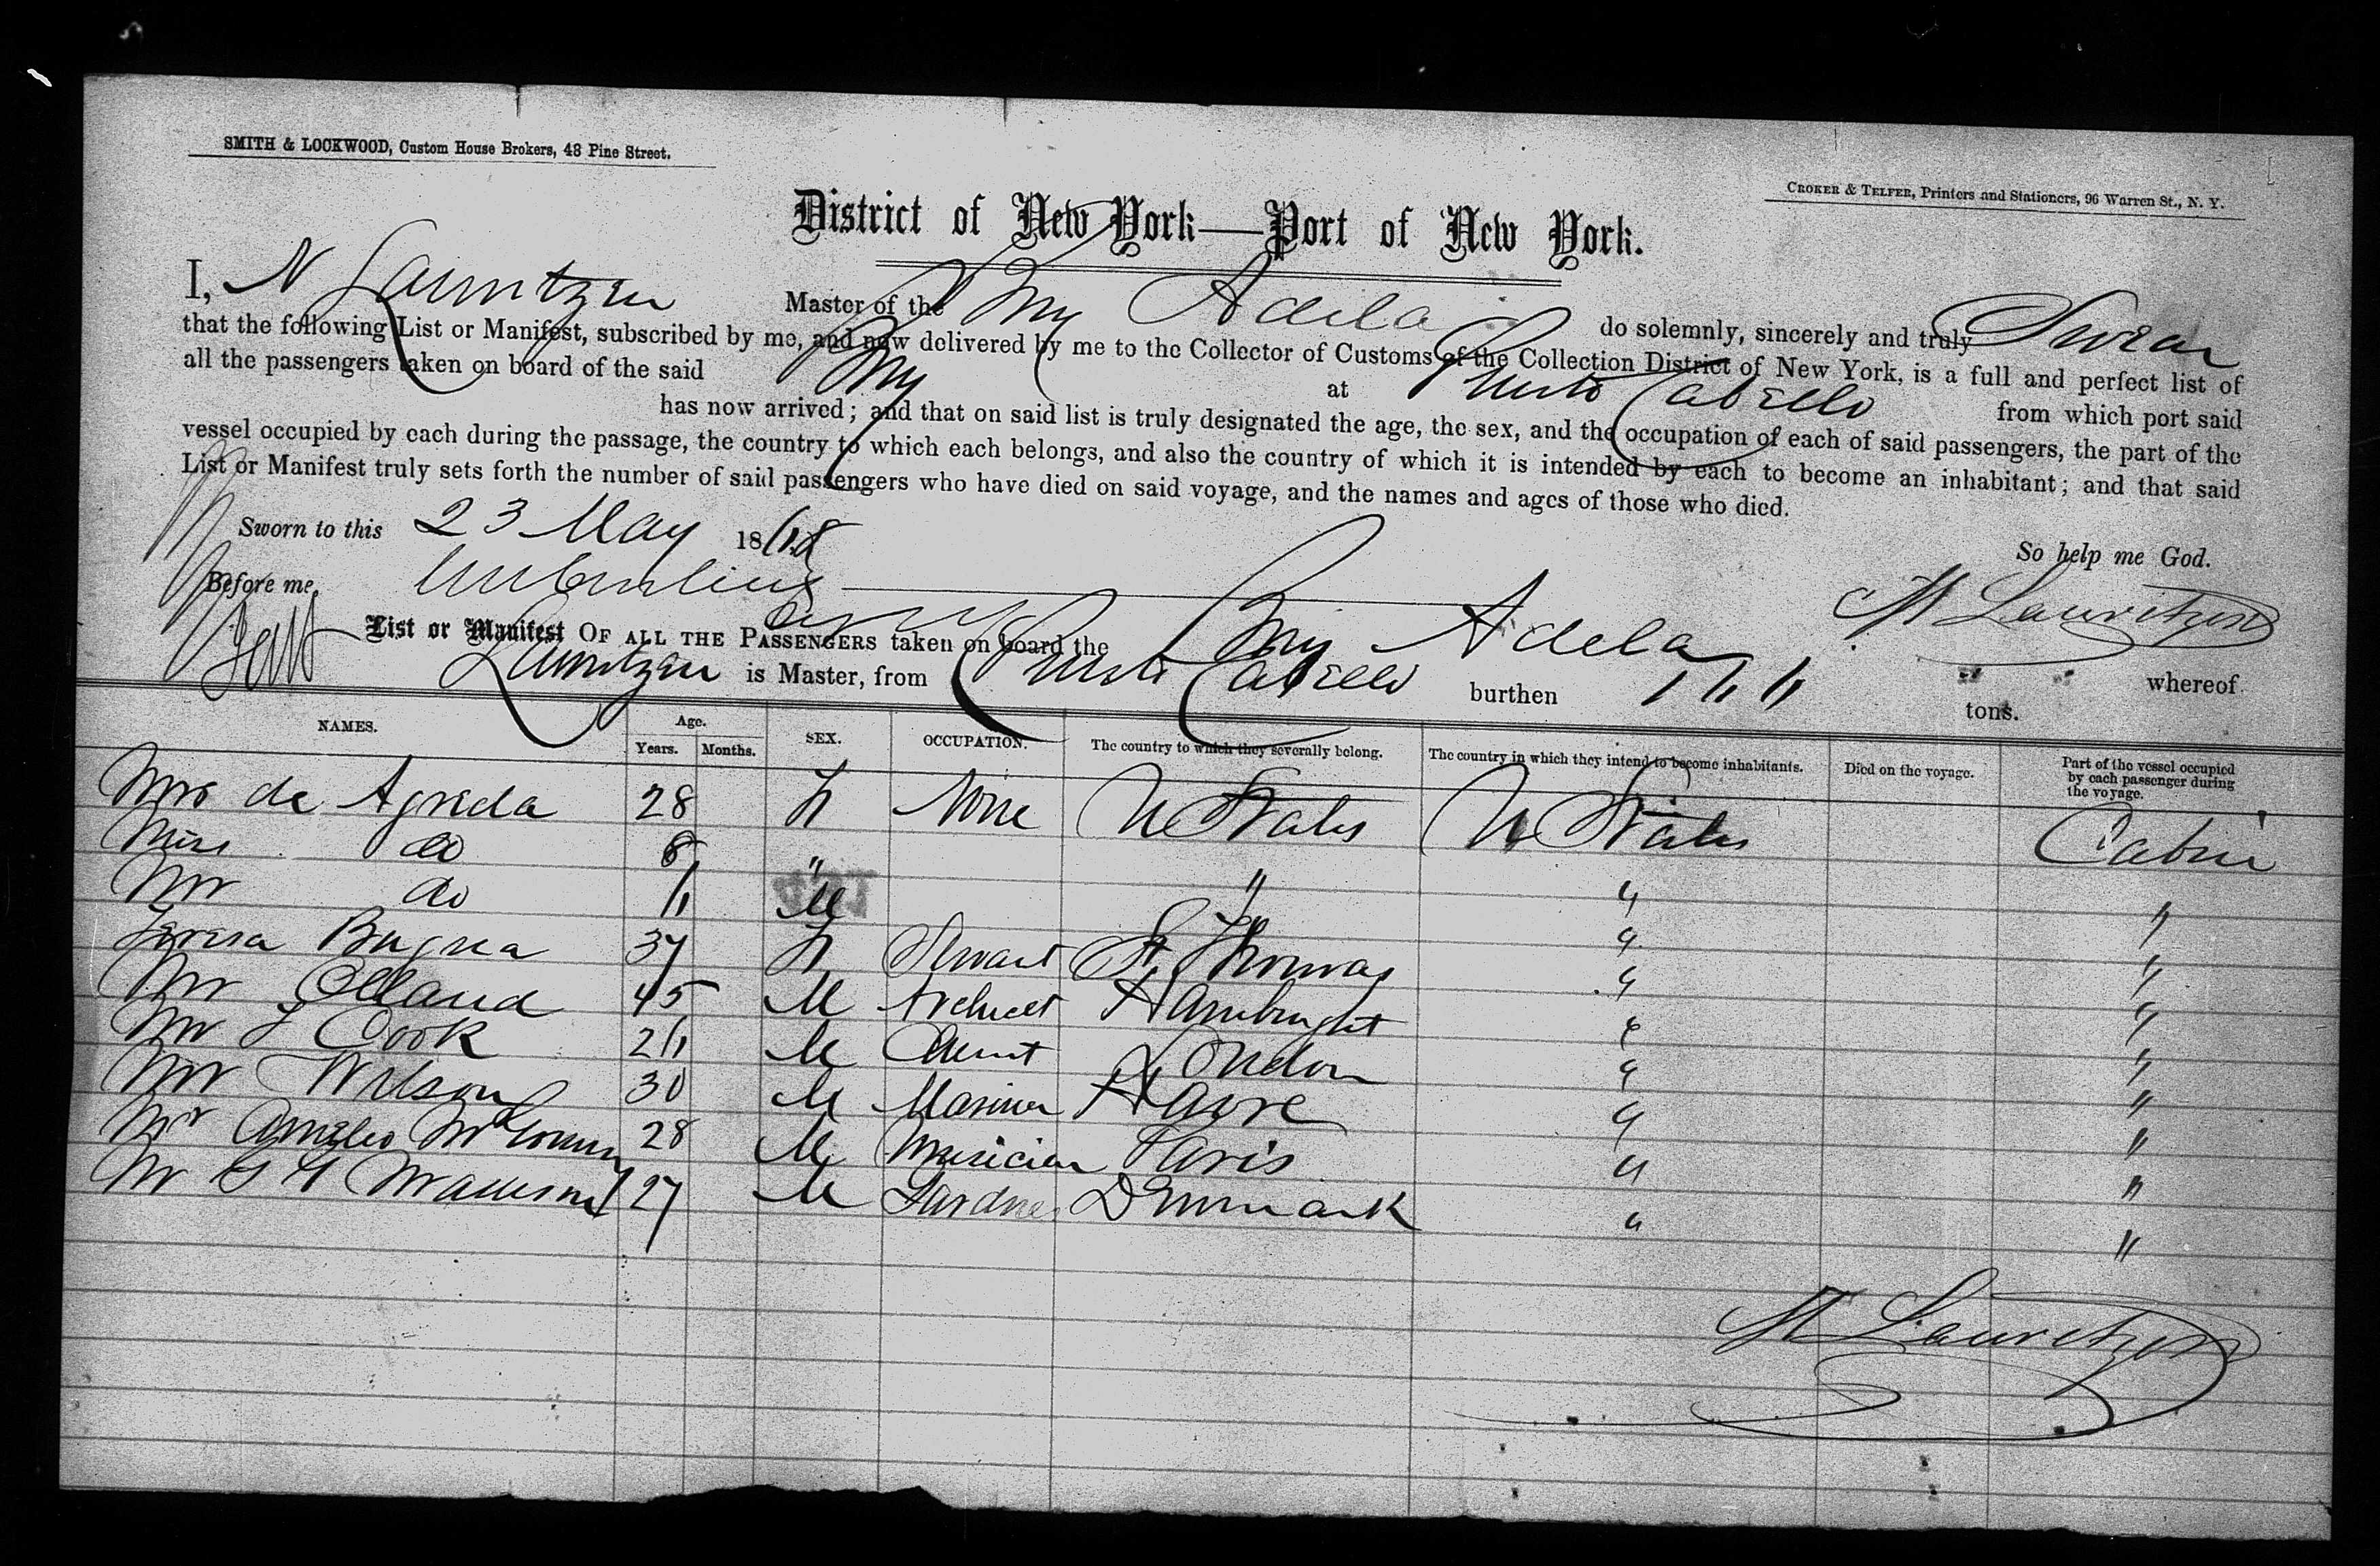 SMITH & LOCKWOOD, Custom House Brokers, 48 Pine Street.
CROKER & TELFER, Printers and Stationers, 96 Warren St., N. Y.
District of New York—Port of New York.
I, N Lauritzen Master of the Adela do solemnly, sincerely and truly Swear
that the following List or Manifest, subscribed by me, and now delivered by me to the Collector of Customs of the Collection District of New York, is a full and perfect list of
all the passengers taken on board of the said at Puerto Cabello from which port said
has now arrived; and that on said list is truly designated the age, the sex, and the occupation of each of said passengers, the part of the
vessel occupied by each during the passage, the country to which each belongs, and also the country of which it is intended by each to become an inhabitant; and that said
List or Manifest truly sets forth the number of said passengers who have died on said voyage, and the names and ages of those who died.
Sworn to this 23 May 1868
So help me God.
Before me,
Lauritzen
List or Manifest OF ALL THE PASSENGERS taken on board the Adela whereof
Lauritzen is Master, from Puerto Cabello burthen 166 tons.
NAMES. Age. Years. Months. SEX. OCCUPATION. The country to which they severally belong. The country in which they intend to become inhabitants. Died on the voyage. Part of the vessel occupied by each passenger during the voyage.
Mrs de Agreda 28 F None U States U States Cabin
Miss do 8 " " " "
Mr do 6 M " "
Teresa 37 F Servant St Thomas " "
Mr Olland 45 M Architect Hambught " "
Mr J Cook 26 M London " "
Mr Wilson 30 M Mariner Havre " "
Mr 28 M Musician Paris " "
Mr 27 M Gardner Denmark " "
Lauritzen